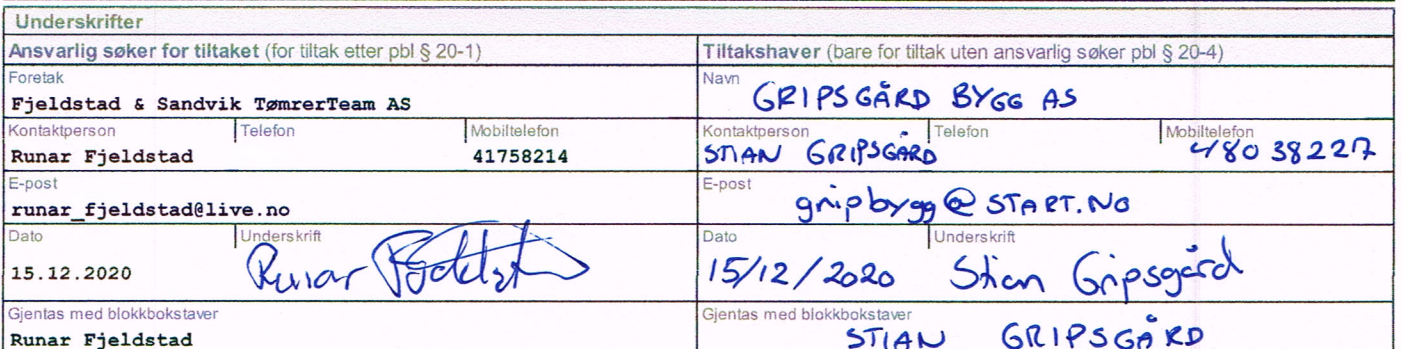 Underskrifter
Ansvarlig søker for tiltaket (for tiltak etter pbl § 20-1)
Foretak
Fjeldstad & Sandvik TømrerTeam AS
Kontaktperson Telefon Mobiltelefon
Runar Fjeldstad 41758214
E-post
runar_fjeldstad@live.no
Dato Underskrift
15.12.2020 Runar Fjeldstad
Gjentas med blokkbokstaver
Runar Fjeldstad
Tiltakshaver (bare for tiltak uten ansvarlig søker pbl § 20-4)
Navn
GRIPSGÅRD BYGG AS
Kontaktperson Telefon Mobiltelefon
STIAN GRIPSGÅRD 480 38227
E-post
gripbygg@START.NO
Dato Underskrift
15/12/2020 Stian Gripsgård
Gjentas med blokkbokstaver
STIAN GRIPSGÅRD